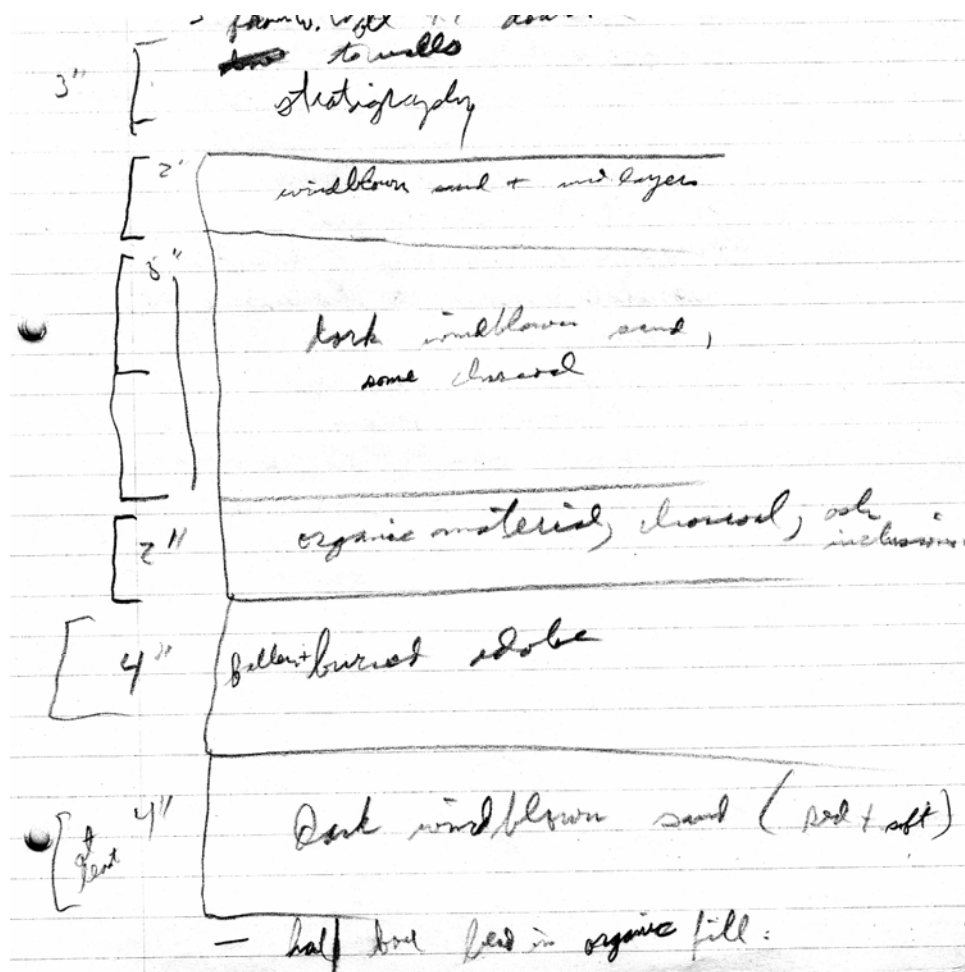 to walls
3"
stratigraphy
2"
windblown sand + mud layers
8"
Dark windblown sand,
some charcoal
2"
organic material, charcoal, ash
inclusions
4"
fallen + burned adobe
at least 4"
Dark windblown sand (red + soft)
— half bowl in organic fill.